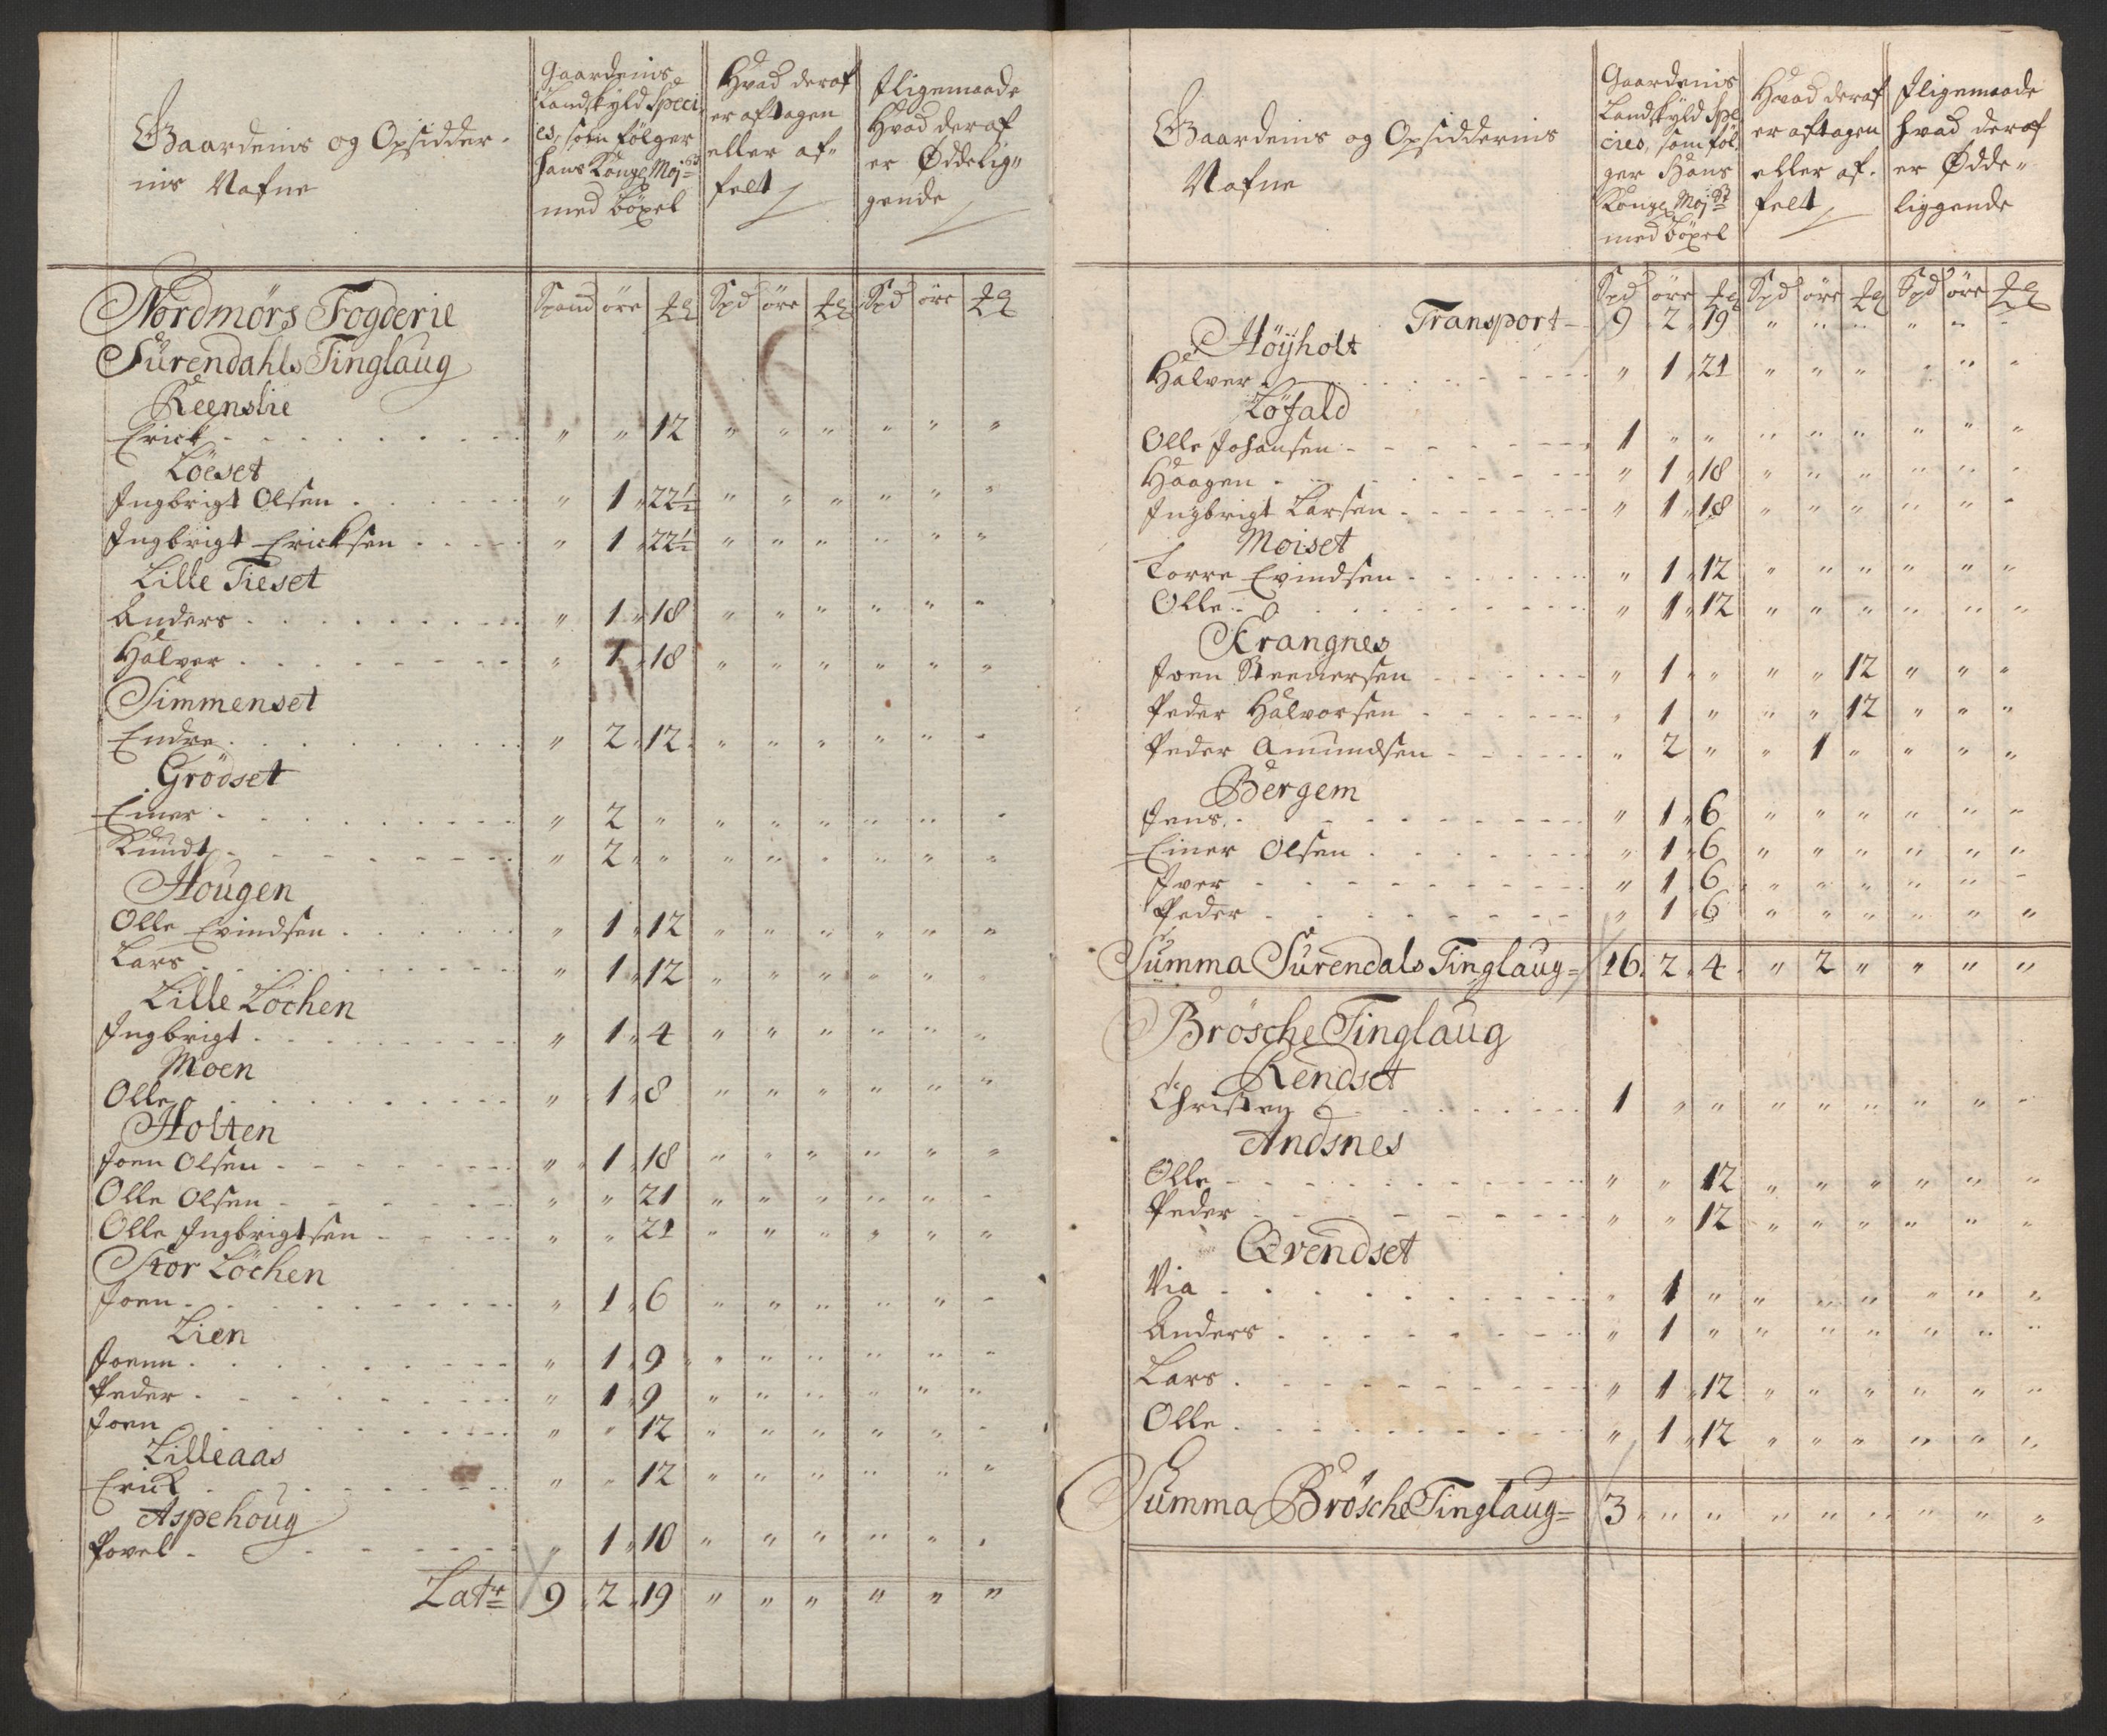 Gaardenis og Opsidder-
nis Nafne
Gaardenis
Landskyld Speci
ies, som følger
hans Kongl Maj.st
med böxel
Hvad deraf
er aftagen
eller af-
felt
Iligemaade
Hvad deraf
er Øddelig-
gende
Nordmørs Fogderie
Spand øre Spd öre Spd öre
Surendahls Tinglaug
Reenslie
Erick " " 12 " " " " " "
Löeset
Ingbrigt Olsen " 1 22½ " " " " " "
Ingbrigt Ericksen " 1 22½ " " " " " "
Lille Tieset
Anders " 1 18 " " " " " "
Halver " 1 18 " " " " " "
Simmenset
Endre " 2 12 " " " " " "
Grödset
Einer " 2 " " " " " " "
Knudt " 2 " " " " " " "
Hougen
Olle Evindsen " 1 12 " " " " " "
Lars " 1 12 " " " " "
Lille Löchen
Ingbrigt " 1 4 " " " " " "
Moen
Olle " 1 8 " " " " " "
Holten
Joen Olsen " 1 18 " " " " " "
Olle Olsen " " 21 " " " " " "
Olle Ingbrigtsen " " 21 " " " " " "
Stor Löchen
Joen " 1 6 " " " " " "
Lien
Joenn " 1 9 " " " " " "
Peder " 1 9 " " " " " "
Joen " " 12 " " " " " "
Lilleaas
Erick " " 12 " " " " " "
Aspehoug
Povel " 1 10 " " " " " "
Latr 9 2 19 " " " " " "
Gaardenis og Opsiddernis
Nafne
Gaardenis
Landskyld Spe
cies, som föl
ger Hans
Kongl Maj.st
med böxel
Hvad deraf
er aftagen
eller af-
felt
Iligemaade
hvad deraf
er Ødde-
liggende
Spd öre Spd öre Spd öre
Transport 9 2 19 " " " " " "
Höÿholt
Halver " 1 21 " " " " " "
Löfald
Olle Johansen 1 " " " " " " " "
Haagen " 1 18 " " " " " "
Ingbrigt Larsen " 1 18 " " " " " "
Moiset
Torre Evindsen " 1 12 " " " " " "
Olle " 1 12 " " " " " "
Krangnes
Joen Steenersen " 1 " " " 12 " " "
Peder Halvorsen " 1 " " " 12 " " "
Peder Amundsen " 2 " " 1 " " " "
Bergem
Jens " 1 6 " " " " " "
Einer Olsen " 1 6 " " " " " "
Iver " 1 6 " " " " " "
Peder " 1 6 " " " " " "
Summa Surendals Tinglaug 16 2 4 " 2 " " " "
Brösche Tinglaug
Rendset
Christen 1 " " " " " " " "
Andsnes
Olle " " 12 " " " " " "
Peder " " 12 " " " " " "
Qvendset
Via " 1 " " " " " " "
Anders " 1 " " " " " " "
Lars " 1 12 " " " " " "
Olle " 1 12 " " " " " "
Summa Brösche Tinglaug 3 " " " " " " " "